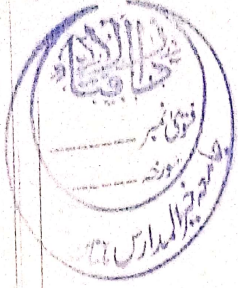 دارالافتاء
فتویٰ نمبر
مورخہ
جامعہ خیر المدارس ملتان